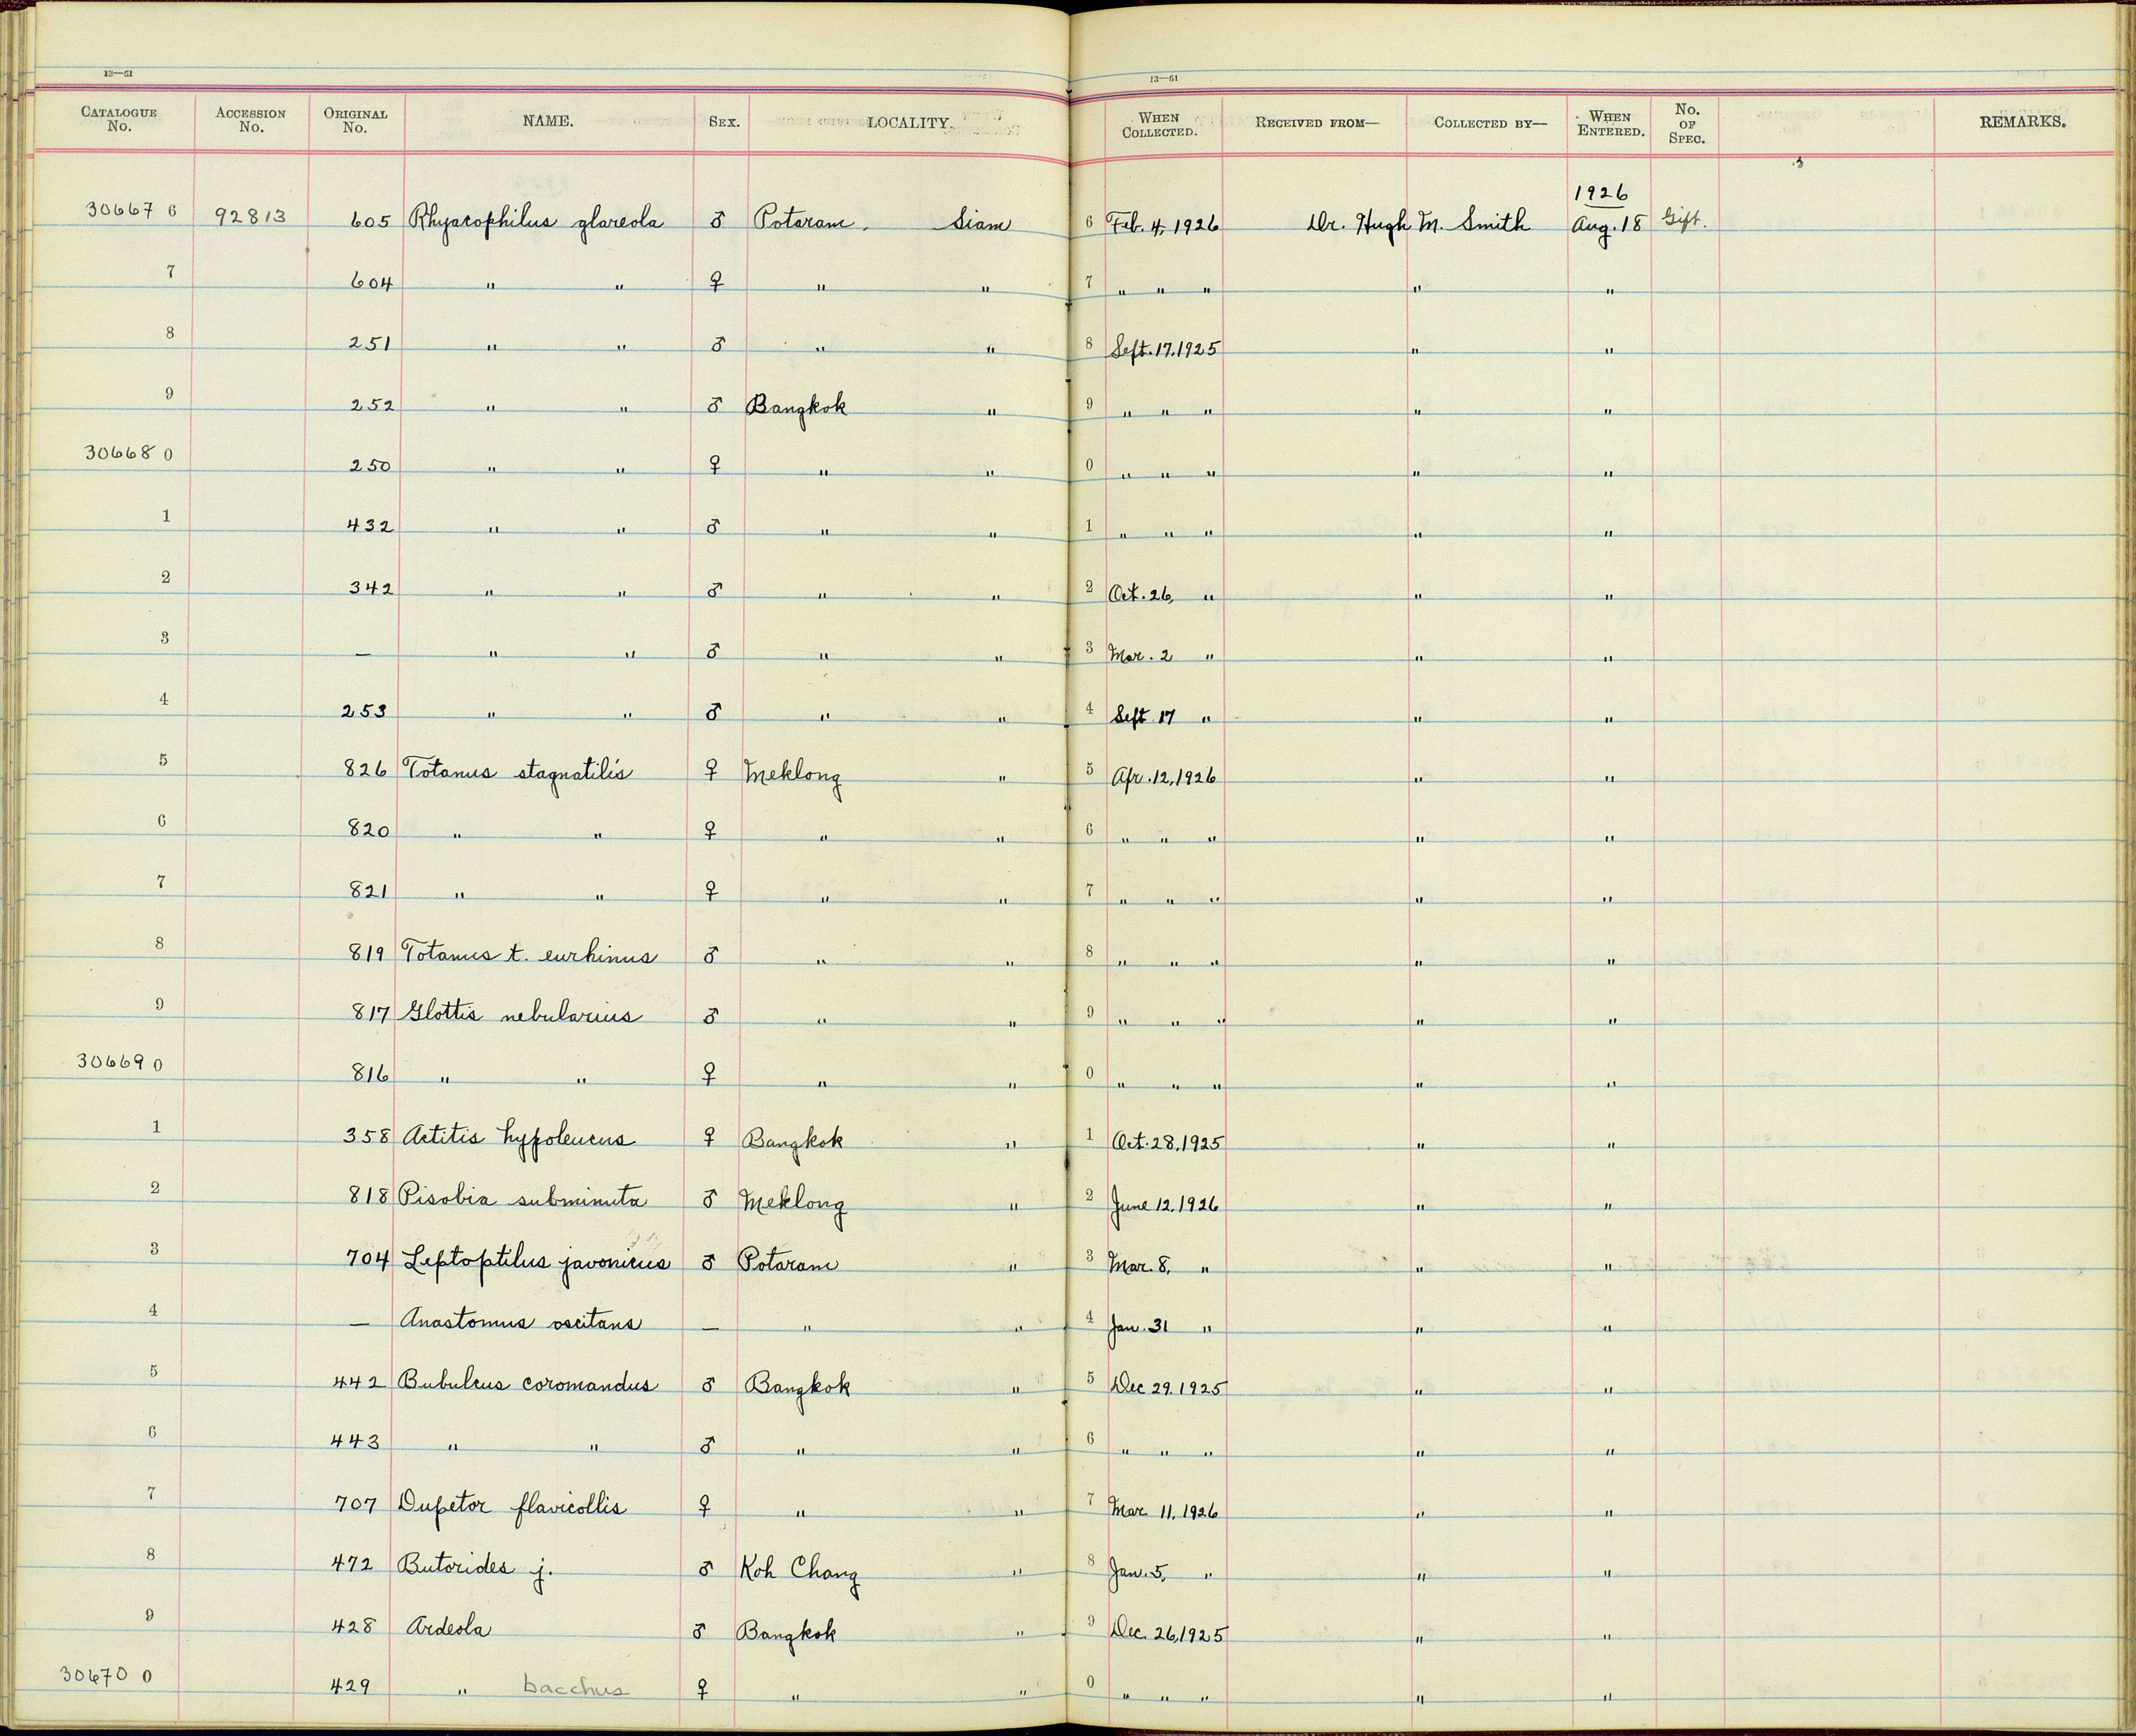 13—51 13—51
CATALOGUE No. ACCESSION No. ORIGINAL No. NAME. SEX. LOCALITY. WHEN COLLECTED. RECEIVED FROM— COLLECTED BY— WHEN ENTERED. No. OF SPEC. REMARKS.
1926
30667 6 92813 605 Rhyacophilus glareola ♂ Potaram, Siam 6 Feb. 4, 1926 Dr. Hugh M. Smith Aug. 18 Gift.
7 604 " " ♀ " " 7 " " " " "
8 251 " " ♂ " " 8 Sept. 17, 1925 " "
9 252 " " ♂ Bangkok " 9 " " " " "
30668 0 250 " " ♀ " " 0 " " " " "
1 432 " " ♂ " " 1 " " " " "
2 342 " " ♂ " " 2 Oct. 26, " " "
3 — " " ♂ " " 3 Mar. 2 " " "
4 253 " " ♂ " " 4 Sept 17 " " "
5 826 Totanus stagnatilis ♀ Meklong " 5 Apr. 12, 1926 " "
6 820 " " ♀ " " 6 " " " " "
7 821 " " ♀ " " 7 " " " " "
8 819 Totanus t. eurhinus ♂ " " 8 " " " " "
9 817 Glottis nebularius ♂ " " 9 " " " " "
30669 0 816 " " ♀ " " 0 " " " " "
1 358 Actitis hypoleucus ♀ Bangkok " 1 Oct. 28, 1925 " "
2 818 Pisobia subminuta ♂ Meklong " 2 June 12, 1926 " "
3 704 Leptoptilus javonicus ♂ Potaram " 3 Mar. 8, " " "
4 — Anastomus oscitans — " " 4 Jan. 31 " " "
5 442 Bubulcus coromandus ♂ Bangkok " 5 Dec 29, 1925 " "
6 443 " " ♂ " " 6 " " " " "
7 707 Dupetor flavicollis ♀ " " 7 Mar 11, 1926 " "
8 472 Butorides j. ♂ Koh Chang " 8 Jan. 5, " " "
9 428 Ardeola ♂ Bangkok " 9 Dec. 26, 1925 " "
30670 0 429 " bacchus ♀ " " 0 " " " " "